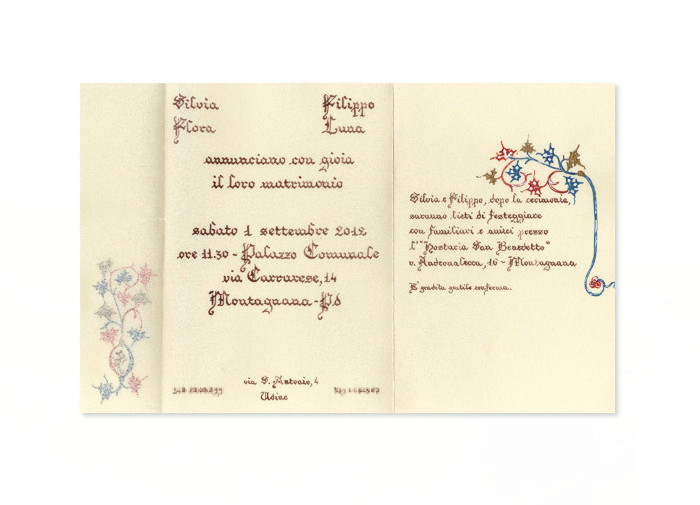 Silvia Filippo
Flora Luna
annunciano con gioia
il loro matrimonio
sabato 1 settembre 2012
ore 11.30 - Palazzo Comunale
via Carrarese, 14
Montagnana - Pd
via S. Antonio, 4
Udine
Silvia e Filippo, dopo la cerimonia,
saranno lieti di festeggiare
con familiari e amici presso
l'"Hostaria San Benedetto"
v. Andronalecca, 16 - Montagnana
E' gradita gentile conferma.